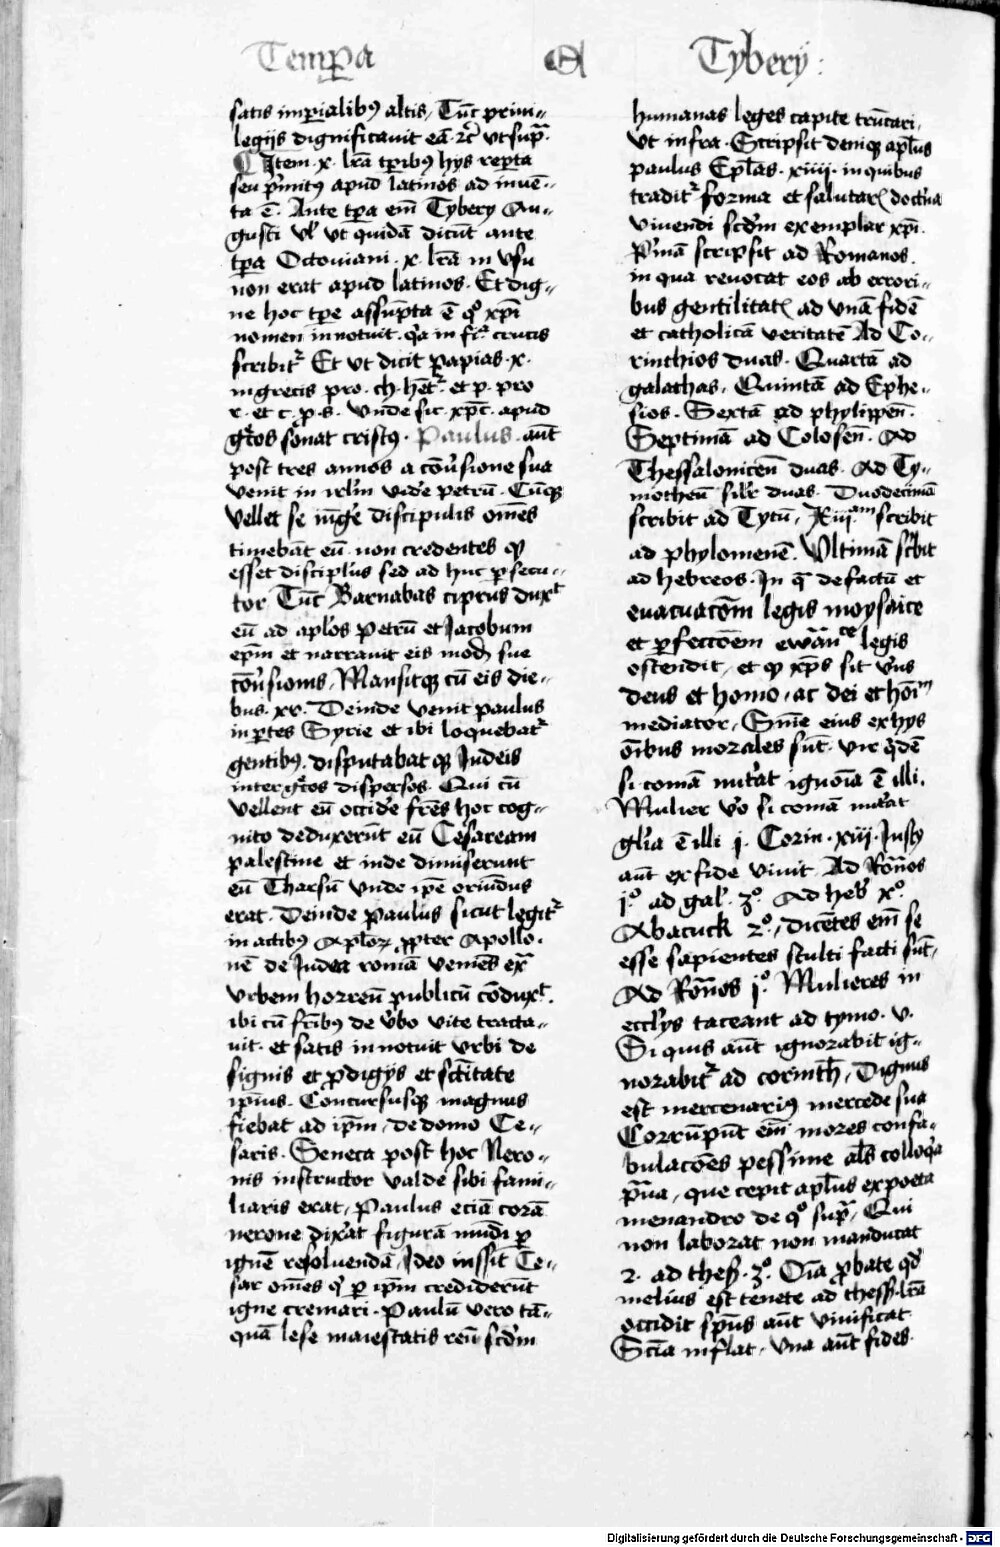 Temp̱a
Tybery
satis imp̱ialib⁹ altis, Tūc privi-
legijs dignificavit eā · ⁊c̄ vt sup̄ᵃ
Item · x · lr̄a tp̱rib⁹ hys rep̱ta
seu p̱mit⁹ apud latinos ad inuē-
ta ē · Ante tp̱a em̄ Tybery Au-
gusti vl̕ vt quidā dicūt ante
tp̱a Octouiani · x · lr̄a in vsu
non erat apud latinos · Et dig-
ne hoc tp̱e assūpta ē qº xp̄i
nomen innotuit · qᵃ in fiᵍ crucis
scribitᷣ Et vt dicit papias · x ·
in grecis pro · ch · hētᷣ · et p · pro
r · et c · p · s · vnde sic · xpc̄ · apud
gc̄os sonat crist⁹ · Paulus · aūt
post tres annos a cōu̕sione sua
venit in irl̄m vide̕ petrū · Cūqꝫ
vellet se iūge̕ discipulis om̄es
timebāt eū · non credentes ꝙ
esset discipl̕us sed ad huc p̱secu-
tor Tūc Barnabas ciprus duxᵗ
eū ad apl̕os Petrū et Jacobum
ep̄m et narrauit eis modū sue
cōu̕sionis, Mansitqꝫ cū eis die-
bus · xv · Deinde venit paulus
in p̱tes Syrie et ibi loquebatᷣ
gentib⁹ · disputabat qꝫ Judeis
inter gc̄os dispersos · Qui cū
vellent eū occide̕ frēs hoc cog-
nito deduxerūt eū Cesaream
palestine et inde dimiserunt
eū Tharsū vnde ip̄e oriūdus
erat · Deinde paulus sicut legitᷣ
in actib⁹ Apl̕oꝝ ꝓpter Apollo-
nē de Judea romā veniēs exᵃ
vrbem horreū publicū cōduxᵗ ·
ibi cū fr̄ib⁹ de v̕bo vite tracta-
uit · et satis innotuit vrbi de
signis et ꝓdigijs et sc̄itate
ip̄ius · Concursusqꝫ magnus
fiebat ad ip̄m, de domo Ce-
saris · Seneca post hoc Nero-
nis instructor valde sibi fami-
liaris erat, Paulus eciā corā
nerone dix̕at figurā mūdi p̱
ignē resoluendā, Ideo iussit Ce-
sar om̄es qⁱ p̱ ip̄m crediderūt
igne cremari · Paulū vero tā-
quā lese maiestatis reū scd̄m
humanas leges capite trūcari,
vt infra · Scripsit deniqꝫ apl̕us
paulus Ep̄las · xiiii · in quibus
traditᷣ forma et salutar̄ doctⁱna
viuendi scd̄m exemplar xp̄i ·
Pⁱmā scripsit ad Romanos ·
in qua reuocat eos ab errori-
bus gentilitat̄ ad vnā fidē
et catholicā veritatē Ad Co-
rinthios duas · Quartā ad
galathas, Quintā ad Ephe-
sios · Sextā ad phylippen̄ ·
Septimā ad Colosen̄ · Ad
Thessalonicen̄ duas · Ad Ty-
motheū sil̕r duas · Duodecimā
scribit ad Tytū, xiijᵃᵐ scribit
ad phylomenē · Vltimā sc̕bit
ad hebreos · In qᵃ defactū et
euacuacōm legis moysaice
et p̱feccōem ewan̄ᶜᵉ legis
ostendit, et ꝙ xp̄s sit v̕us
deus et homo, ac dei et hoīᵐ
mediator, Snīe eius ex hys
oībus morales sūt · vir qⁱdē
si comā nut̕at ignoīa ē illi,
Mulier v̕o si comā nut̕at
gl̕ia ē illi j · Corin · xiij · Just⁹
aūt ex fide viuit Ad Rōnos
jº · ad gal̕ · 3º · Ad heb̕ xº ·
Abacuck 2º, dicētes em̄ se
esse sapientes stulti facti sūt ·
Ad Rōnos jº · Mulieres in
eccl̕ys taceant ad tymo · v ·
Si quis aūt ignorabit ig-
norabitᷣ ad corinth̄, Dignus
est mercenari⁹ mercede sua
Corrūpūt em̄ mores confa-
bulacōes pessime als̄ colloqⁱa
pᵃua, que cepit apl̕us ex poeta
menandro de qº supᵃ, Qui
non laborat non manducat
2 · ad thess̄ · 3º · Oīa ꝓbate qd̄
melius est tenete ad thess̄ · lr̄a
occidit sp̄us aūt viuificat
Scīa inflat, vna aūt fides ·
Digitalisierung gefördert durch die Deutsche Forschungsgemeinschaft - DFG